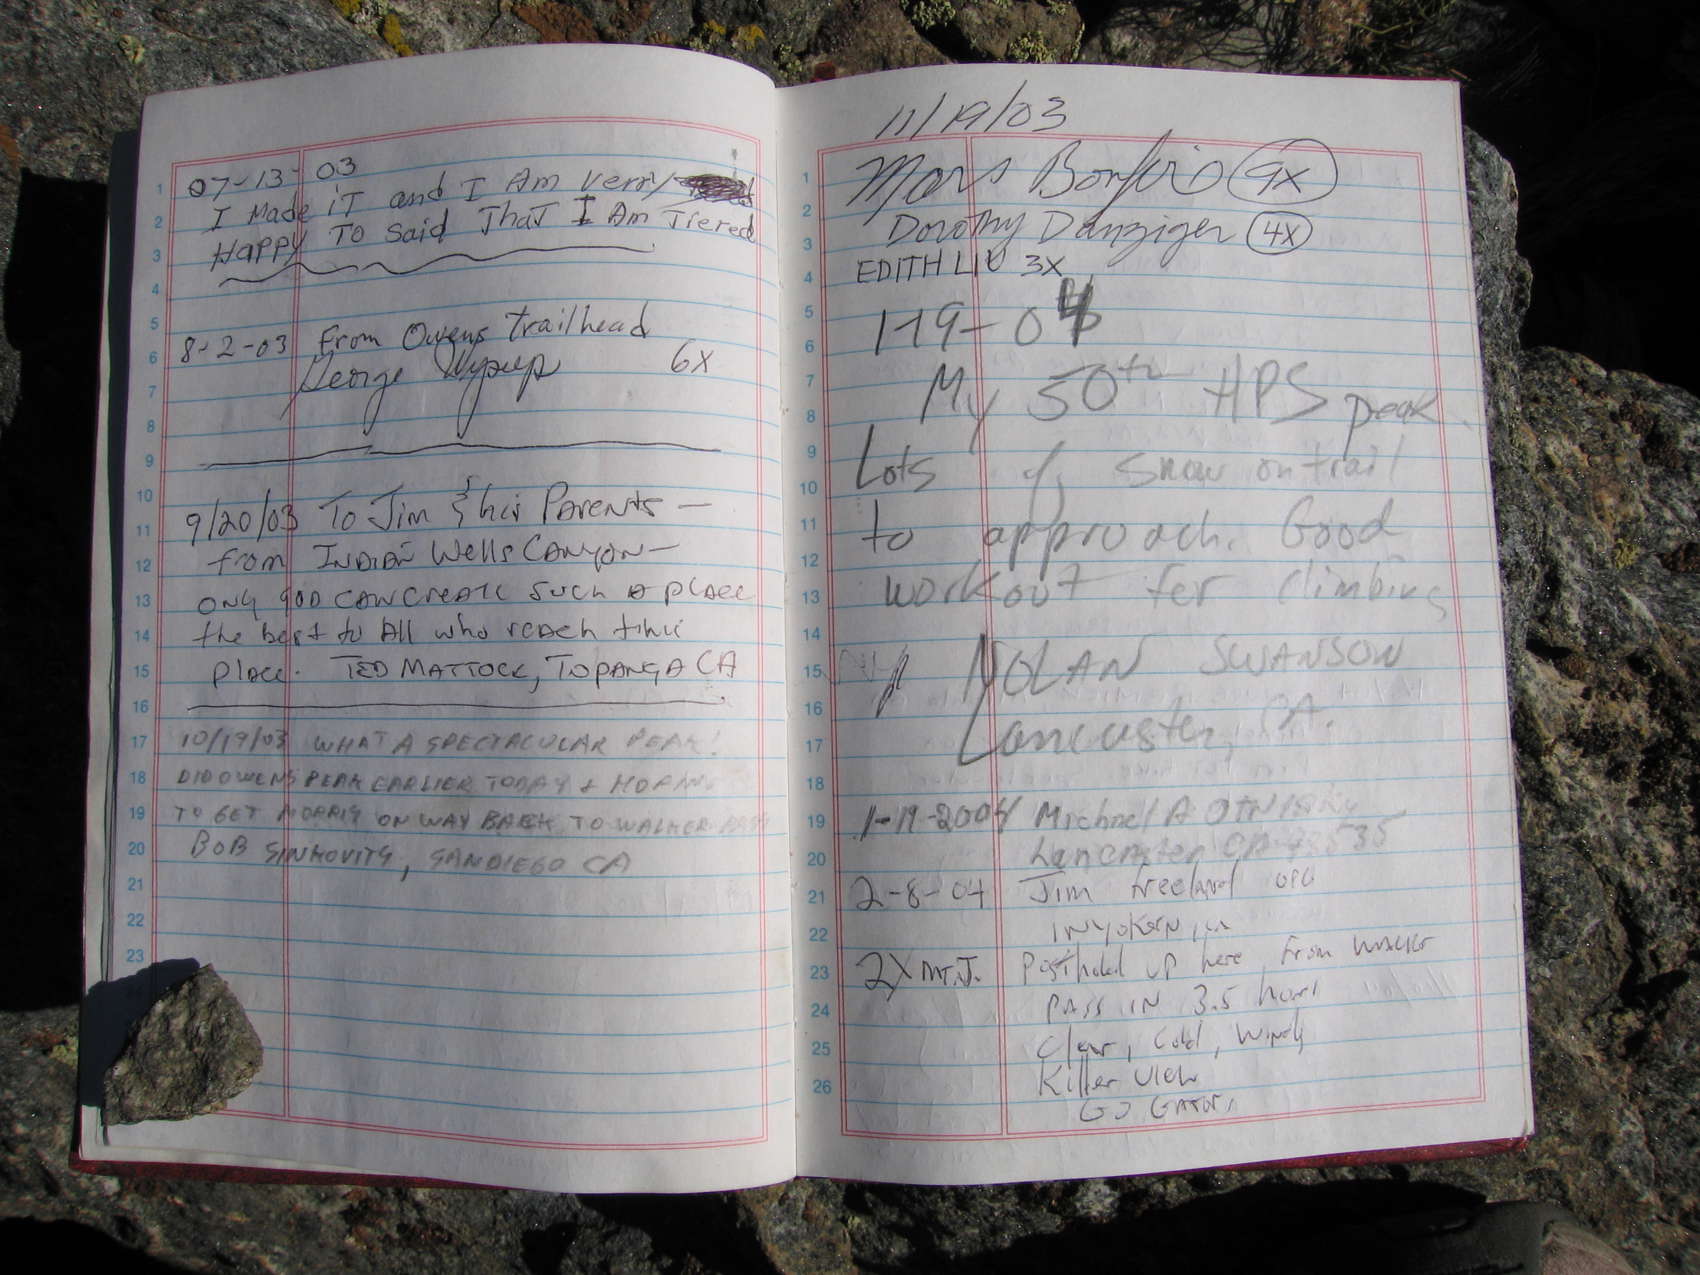 07-13-03
I Made iT and I Am verry
Happy To Said That I Am Tiered
8-2-03 From Owens trailhead
George 6X
9/20/03 To Jim & his Parents —
from Indian Wells Canyon —
only god can create such a place
the best to All who reach this
place. TED MATTOCK, TOPANGA CA
10/19/03 WHAT A SPECTACULAR PEAK!
DID OWENS PEAK EARLIER TODAY + HOPING
TO GET MORRIS ON WAY BACK TO WALKER PASS
BOB SINKOVITS, SAN DIEGO CA
1
2
3
4
5
6
7
8
9
10
11
12
13
14
15
16
17
18
19
20
21
22
23
11/19/03
Mars Bonfire 9X
Dorothy Danziger 4X
EDITH LIU 3X
1-19-04
My 50th HPS peak.
Lots of snow on trail
to approach. Good
workout for climbing
NOLAN SWANSON
Lancaster, CA.
1-19-2004 Michael A
Lancaster CA 93535
2-8-04 Jim Freeland
INYOKERN, CA
2X MT.J. Postholed up here from Walker
PASS IN 3.5 hours
Clear, Cold, Windy
Killer View
Go Gators
1
2
3
4
5
6
7
8
9
10
11
12
13
14
15
16
17
18
19
20
21
22
23
24
25
26